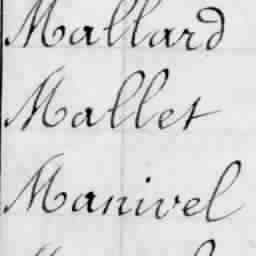 Mallard
Mallet
Manivel